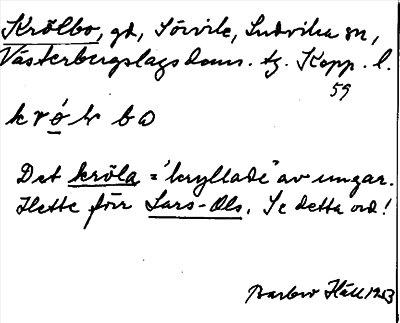 Krölbo, gd, Sörvik, Ludvika sn,
Västerbergslags doms. tg. Kopp. l.
59
Det kröla = "kryllade" av ungar.
Hette förr Lars-Ols. Se detta ord!
Barbro Häll 1953